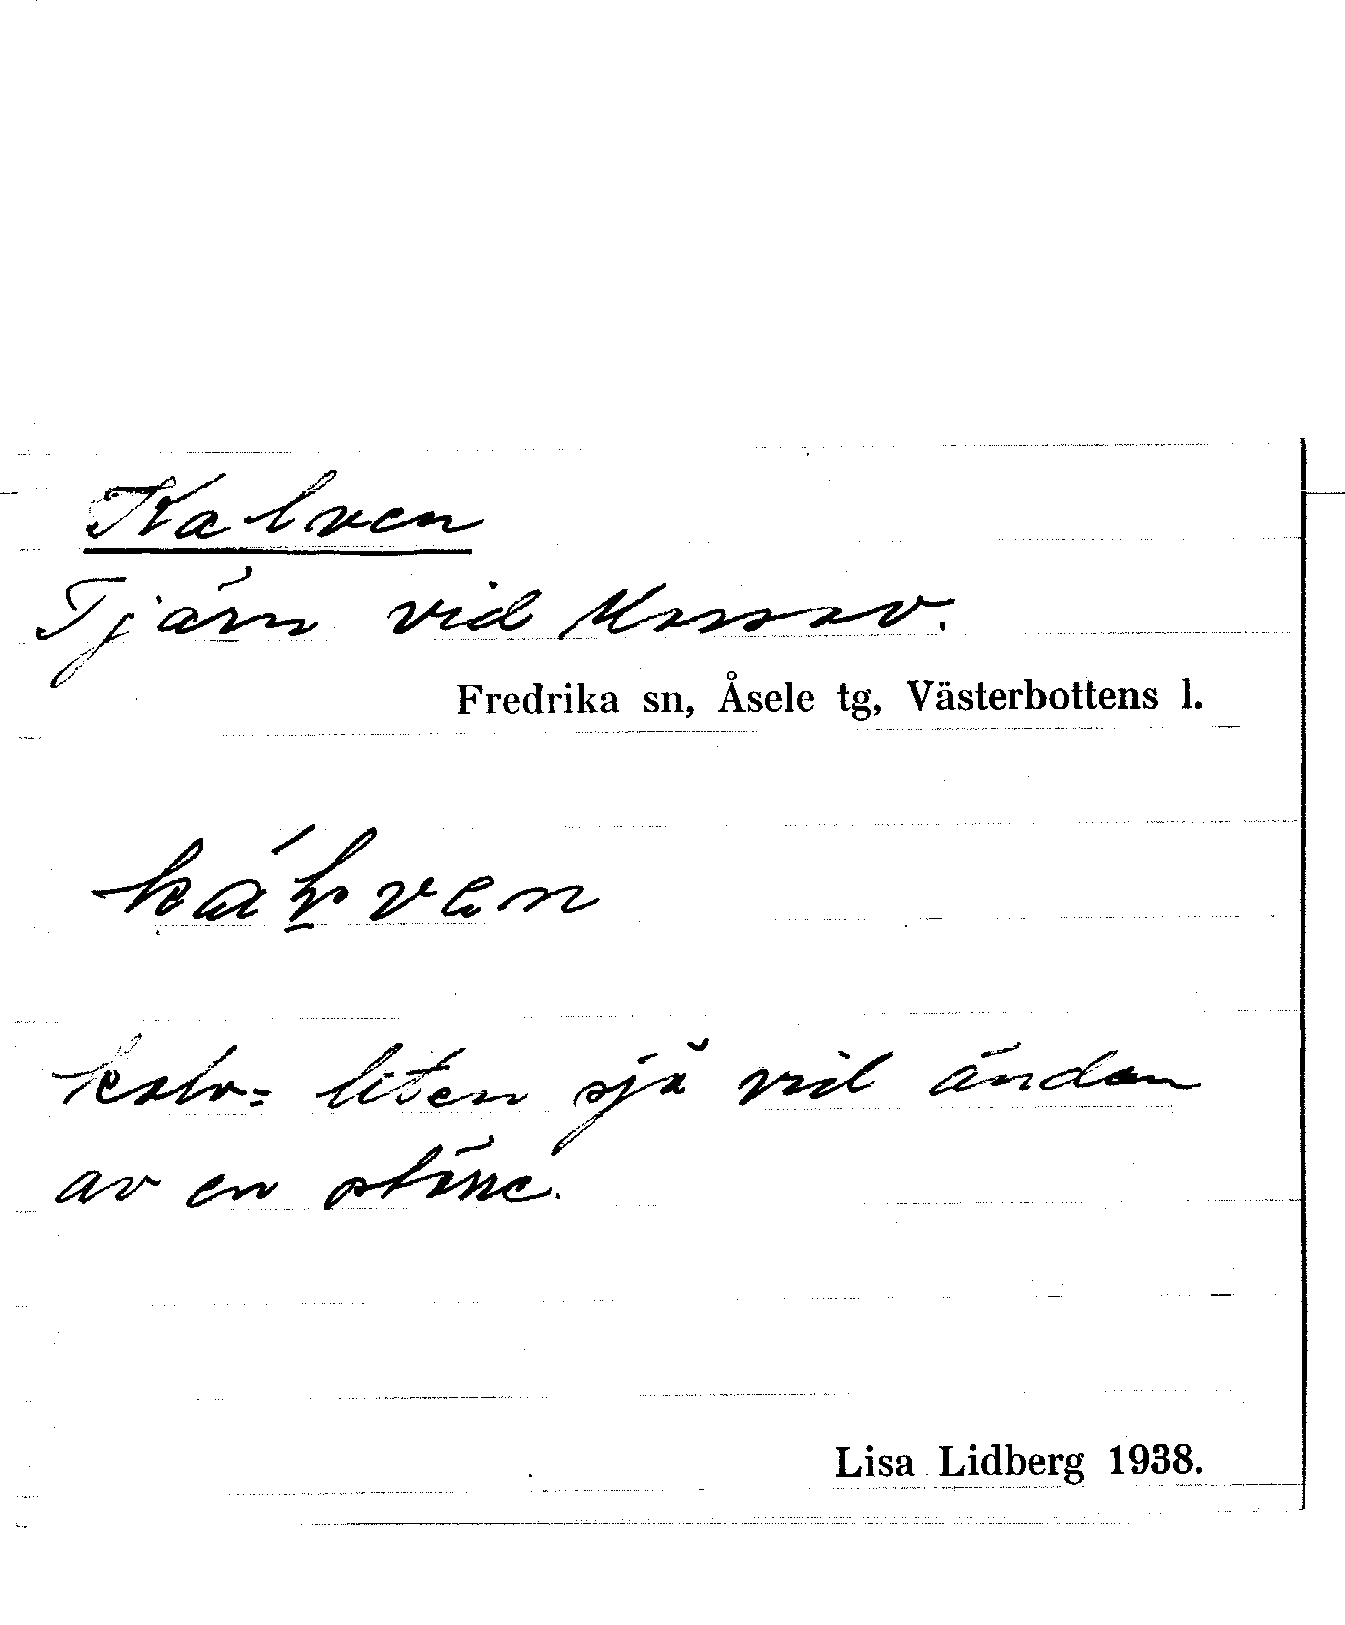 Kalven
Tjärn vid
Fredrika sn, Åsele tg, Västerbottens l.
kalv= liten sjö vid ändan
av en större.
Lisa Lidberg 1938.